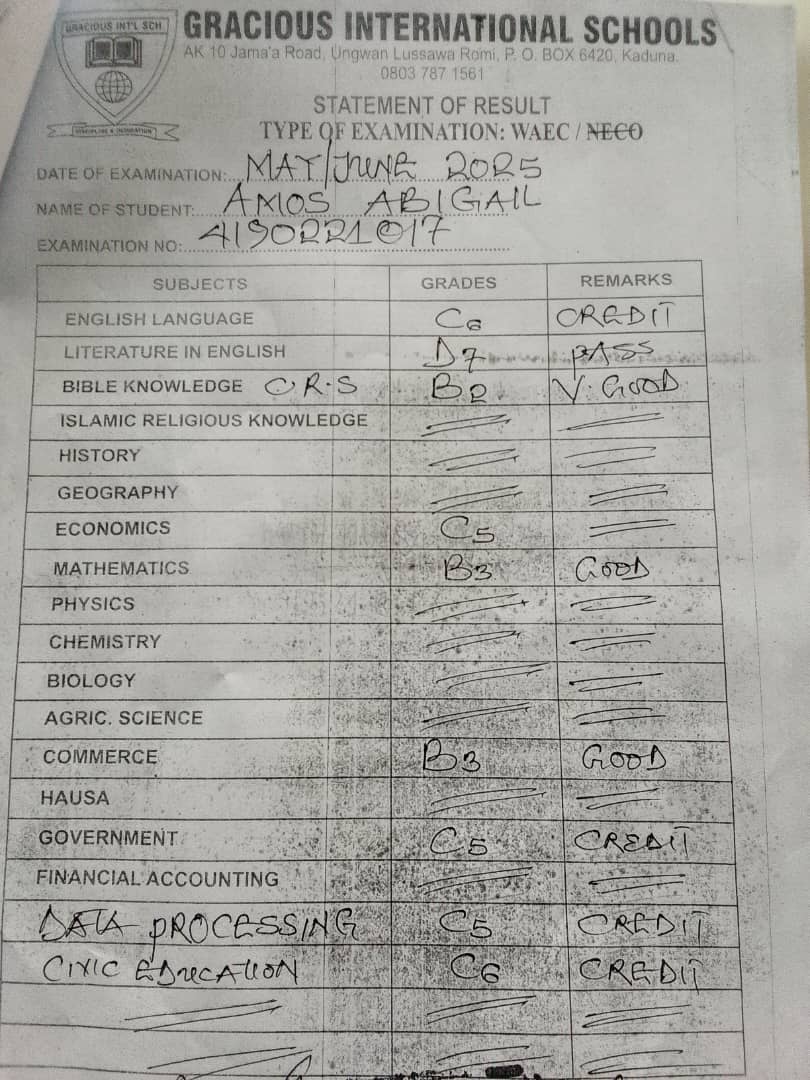 GRACIOUS INT'L SCH
GRACIOUS INTERNATIONAL SCHOOLS
AK 10 Jama'a Road, Ungwan Lussawa Romi, P. O. BOX 6420, Kaduna.
0803 787 1561
STATEMENT OF RESULT
TYPE OF EXAMINATION: WAEC / NECO
DATE OF EXAMINATION: MAY/JUNE 2025
NAME OF STUDENT: AMOS ABIGAIL
EXAMINATION NO: 4190221017
SUBJECTS GRADES REMARKS
ENGLISH LANGUAGE C6 CREDIT
LITERATURE IN ENGLISH D7 PASS
BIBLE KNOWLEDGE C R.S B2 V. GOOD
ISLAMIC RELIGIOUS KNOWLEDGE
HISTORY
GEOGRAPHY
ECONOMICS C5
MATHEMATICS B3 GOOD
PHYSICS
CHEMISTRY
BIOLOGY
AGRIC. SCIENCE
COMMERCE B3 GOOD
HAUSA
GOVERNMENT C5 CREDIT
FINANCIAL ACCOUNTING
DATA PROCESSING C5 CREDIT
CIVIC EDUCATION C6 CREDIT